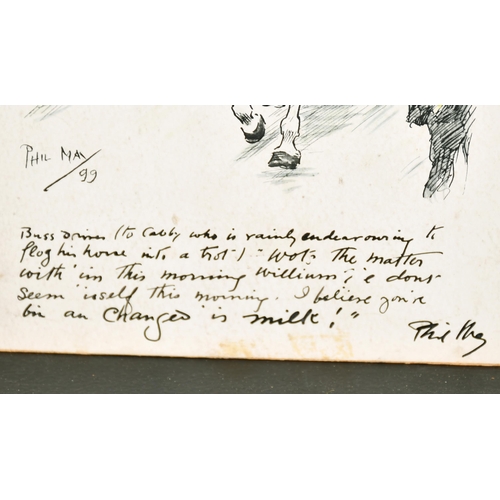 PHIL MAY
99
Buss Driver (to Cabby who is vainly endeavouring to
flog his horse into a trot) "Wot's the matter
with 'im this morning William? 'e dont
seem 'isself this morning. I believe you've
bin an changed 'is milk!"
Phil May